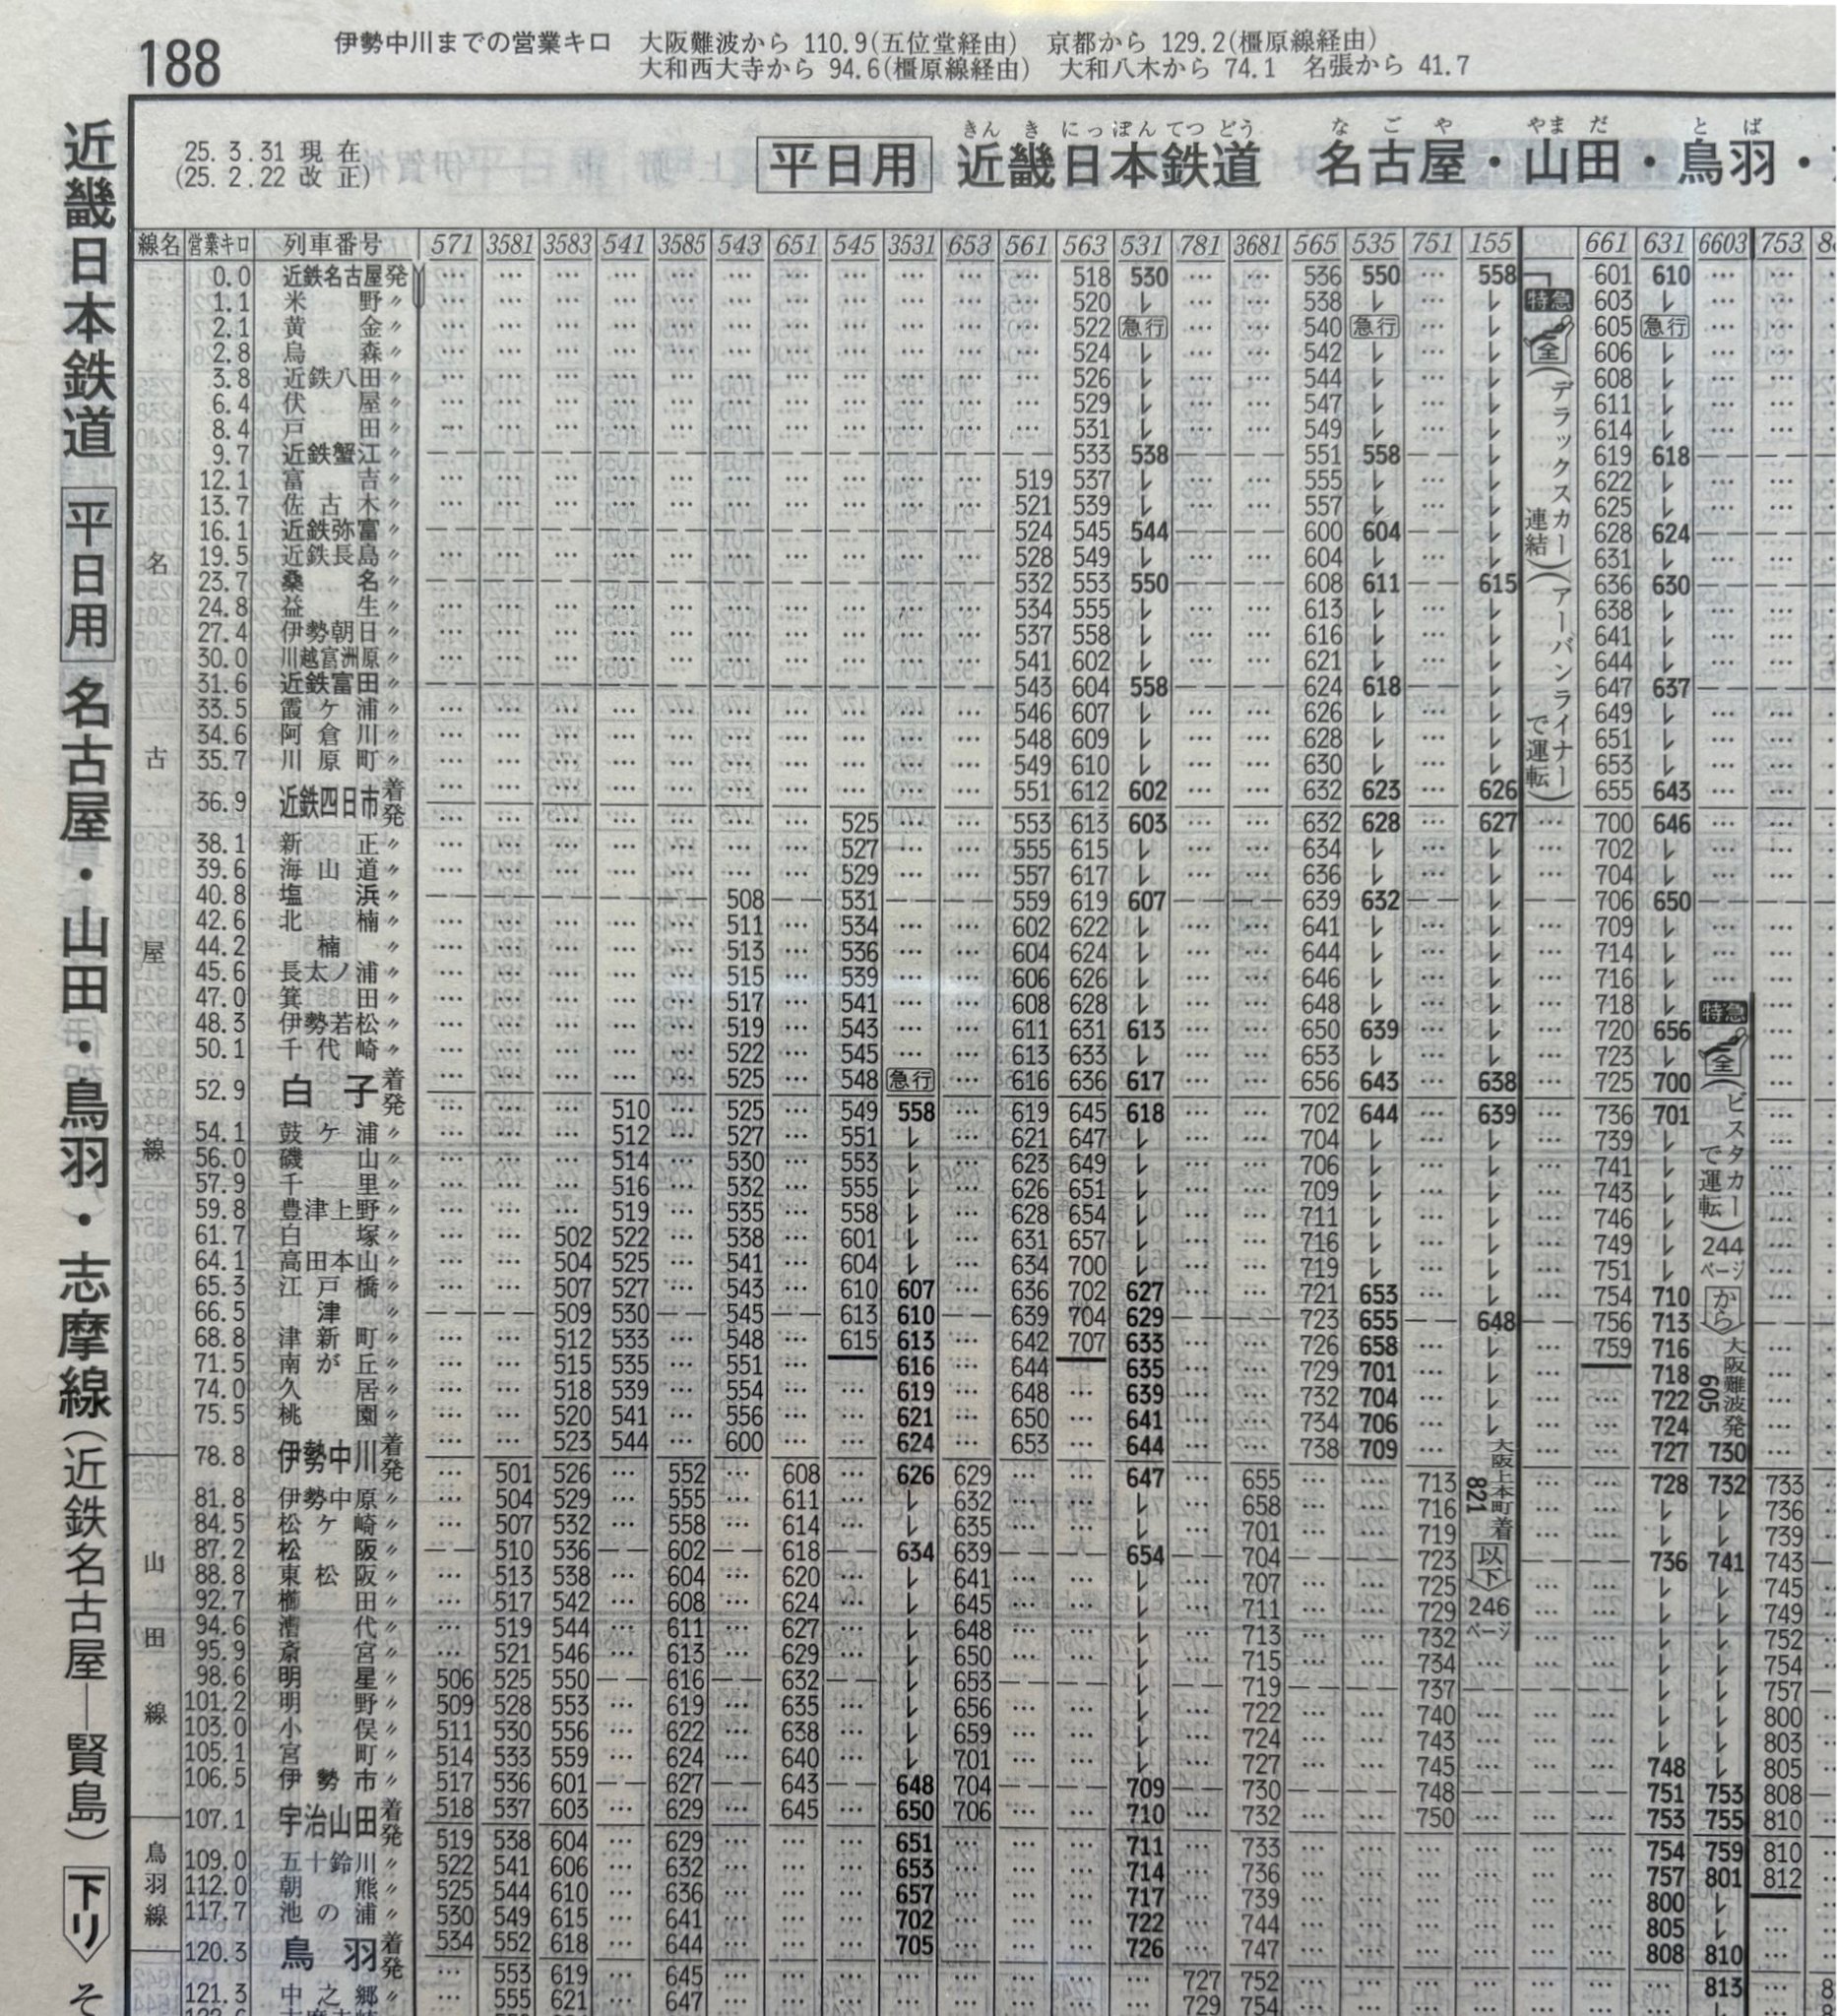 188
伊勢中川までの営業キロ 大阪難波から 110.9(五位堂経由) 京都から 129.2(橿原線経由)
大和西大寺から 94.6(橿原線経由) 大和八木から 74.1 名張から 41.7
近畿日本鉄道 平日用 名古屋・山田・鳥羽・志摩線(近鉄名古屋―賢島) 下り そ
25. 3.31 現在
(25. 2.22 改正)
きんきにっぽんてつどう なごや やまだ とば
平日用 近畿日本鉄道 名古屋・山田・鳥羽・
線名 営業キロ 列車番号 571 3581 3583 541 3585 543 651 545 3531 653 561 563 531 781 3681 565 535 751 155 661 631 6603 753
名古屋線
0.0 近鉄名古屋発 … 518 530 … 536 550 … 558 601 610 …
1.1 米野〃 … 520 レ … 538 レ … レ 特急 603 レ …
2.1 黄金〃 … 522 急行 … 540 急行 … レ 605 急行 …
2.8 烏森〃 … 524 レ … 542 レ … レ 全 606 レ …
3.8 近鉄八田〃 … 526 レ … 544 レ … レ 608 レ …
6.4 伏屋〃 … 529 レ … 547 レ … レ 611 レ …
8.4 戸田〃 … 531 レ … 549 レ … レ 614 レ …
9.7 近鉄蟹江〃 — 533 538 — 551 558 — レ 619 618 —
12.1 富吉〃 … 519 537 レ … 555 レ … レ 622 レ …
13.7 佐古木〃 … 521 539 レ … 557 レ … レ 625 レ …
16.1 近鉄弥富〃 — 524 545 544 — 600 604 — レ 628 624 —
19.5 近鉄長島〃 … 528 549 レ … 604 レ … レ 631 レ …
23.7 桑名〃 — 532 553 550 — 608 611 — 615 636 630 —
24.8 益生〃 … 534 555 レ … 613 レ … レ 638 レ …
27.4 伊勢朝日〃 … 537 558 レ … 616 レ … レ 641 レ …
30.0 川越富洲原〃 … 541 602 レ … 621 レ … レ 644 レ …
31.6 近鉄富田〃 — 543 604 558 — 624 618 — レ 647 637 —
33.5 霞ケ浦〃 … 546 607 レ … 626 レ … レ 649 レ …
34.6 阿倉川〃 … 548 609 レ … 628 レ … レ 651 レ …
35.7 川原町〃 … 549 610 レ … 630 レ … レ 653 レ …
36.9 近鉄四日市着 — 551 612 602 — 632 623 — 626 655 643 —
発 … 525 … 553 613 603 … 632 628 … 627 700 646 …
38.1 新正〃 … 527 … 555 615 レ … 634 レ … レ 702 レ …
39.6 海山道〃 … 529 … 557 617 レ … 636 レ … レ 704 レ …
40.8 塩浜〃 — 508 — 531 — 559 619 607 — 639 632 — レ 706 650 —
42.6 北楠〃 … 511 … 534 … 602 622 レ … 641 レ … レ 709 レ …
44.2 楠〃 … 513 … 536 … 604 624 レ … 644 レ … レ 714 レ …
45.6 長太ノ浦〃 … 515 … 539 … 606 626 レ … 646 レ … レ 716 レ …
47.0 箕田〃 … 517 … 541 … 608 628 レ … 648 レ … レ 718 レ 特急 …
48.3 伊勢若松〃 … 519 … 543 … 611 631 613 … 650 639 … レ 720 656 …
50.1 千代崎〃 … 522 … 545 … 613 633 レ … 653 レ … レ 723 レ 全 …
52.9 白子着 … 525 … 548 急行 … 616 636 617 … 656 643 … 638 725 700 …
発 … 510 … 525 … 549 558 … 619 645 618 … 702 644 … 639 736 701 …
54.1 鼓ケ浦〃 … 512 … 527 … 551 レ … 621 647 レ … 704 レ … レ 739 レ …
56.0 磯山〃 … 514 … 530 … 553 レ … 623 649 レ … 706 レ … レ 741 レ …
57.9 千里〃 … 516 … 532 … 555 レ … 626 651 レ … 709 レ … レ 743 レ …
59.8 豊津上野〃 … 519 … 535 … 558 レ … 628 654 レ … 711 レ … レ 746 レ …
61.7 白塚〃 … 502 522 … 538 … 601 レ … 631 657 レ … 716 レ … レ 749 レ …
64.1 高田本山〃 … 504 525 … 541 … 604 レ … 634 700 レ … 719 レ … レ 751 レ …
65.3 江戸橋〃 … 507 527 … 543 … 610 607 … 636 702 627 … 721 653 … レ 754 710 …
66.5 津〃 — 509 530 — 545 — 613 610 — 639 704 629 — 723 655 — 648 756 713 —
68.8 津新町〃 … 512 533 … 548 … 615 613 … 642 707 633 … 726 658 … レ 759 716 …
71.5 南が丘〃 … 515 535 … 551 … 616 … 644 635 … 729 701 … レ 718 …
74.0 久居〃 … 518 539 … 554 … 619 … 648 … 639 … 732 704 … レ 722 …
75.5 桃園〃 … 520 541 … 556 … 621 … 650 … 641 … 734 706 … レ 724 …
78.8 伊勢中川着 … 523 544 … 600 … 624 … 653 … 644 … 738 709 … 727 730 …
山田線
発 … 501 526 … 552 … 608 … 626 629 … 647 … 655 … 713 … 728 732 733
81.8 伊勢中原〃 … 504 529 … 555 … 611 … レ 632 … レ … 658 … 716 … レ レ 736
84.5 松ケ崎〃 … 507 532 … 558 … 614 … レ 635 … レ … 701 … 719 … レ レ 739
87.2 松阪〃 — 510 536 — 602 — 618 — 634 639 — 654 — 704 — 723 — 736 741 743
88.8 東松阪〃 … 513 538 … 604 … 620 … レ 641 … レ … 707 … 725 … レ レ 745
92.7 櫛田〃 … 517 542 … 608 … 624 … レ 645 … レ … 711 … 729 … レ レ 749
94.6 漕代〃 … 519 544 … 611 … 627 … レ 648 … レ … 713 … 732 … レ レ 752
95.9 斎宮〃 … 521 546 … 613 … 629 … レ 650 … レ … 715 … 734 … レ レ 754
98.6 明星〃 506 525 550 — 616 — 632 — レ 653 — レ — 719 — 737 — レ レ 757
101.2 明野〃 509 528 553 … 619 … 635 … レ 656 … レ … 722 … 740 … レ レ 800
103.0 小俣〃 511 530 556 … 622 … 638 … レ 659 … レ … 724 … 743 … レ レ 803
105.1 宮町〃 514 533 559 … 624 … 640 … レ 701 … レ … 727 … 745 … 748 レ 805
106.5 伊勢市〃 517 536 601 — 627 — 643 — 648 704 — 709 — 730 — 748 — 751 753 808
107.1 宇治山田着 518 537 603 … 629 … 645 … 650 706 … 710 … 732 … 750 … 753 755 810
鳥羽線
発 519 538 604 … 629 … 651 … 711 … 733 … 754 759 810
109.0 五十鈴川〃 522 541 606 … 632 … 653 … 714 … 736 … 757 801 812
112.0 朝熊〃 525 544 610 … 636 … 657 … 717 … 739 … 800 レ
117.7 池の浦〃 530 549 615 … 641 … 702 … 722 … 744 … 805 レ …
120.3 鳥羽着 534 552 618 … 644 … 705 … 726 … 747 … 808 810 …
発 … 553 619 … 645 … 727 752 … 813 …
121.3 中之郷〃 … 555 621 … 647 … 729 754 …
(デラックスカー)連結
(アーバンライナーで運転)
大阪上本町着 821
以下 246ページ
(ビスタカーで運転)
244ページから
大阪難波発 605